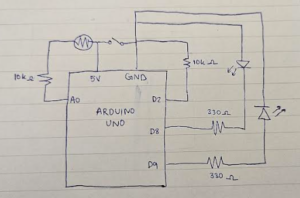 10kΩ
5V
GND
10kΩ
A0
D2
ARDUINO
UNO
D8
330Ω
D9
330
Ω